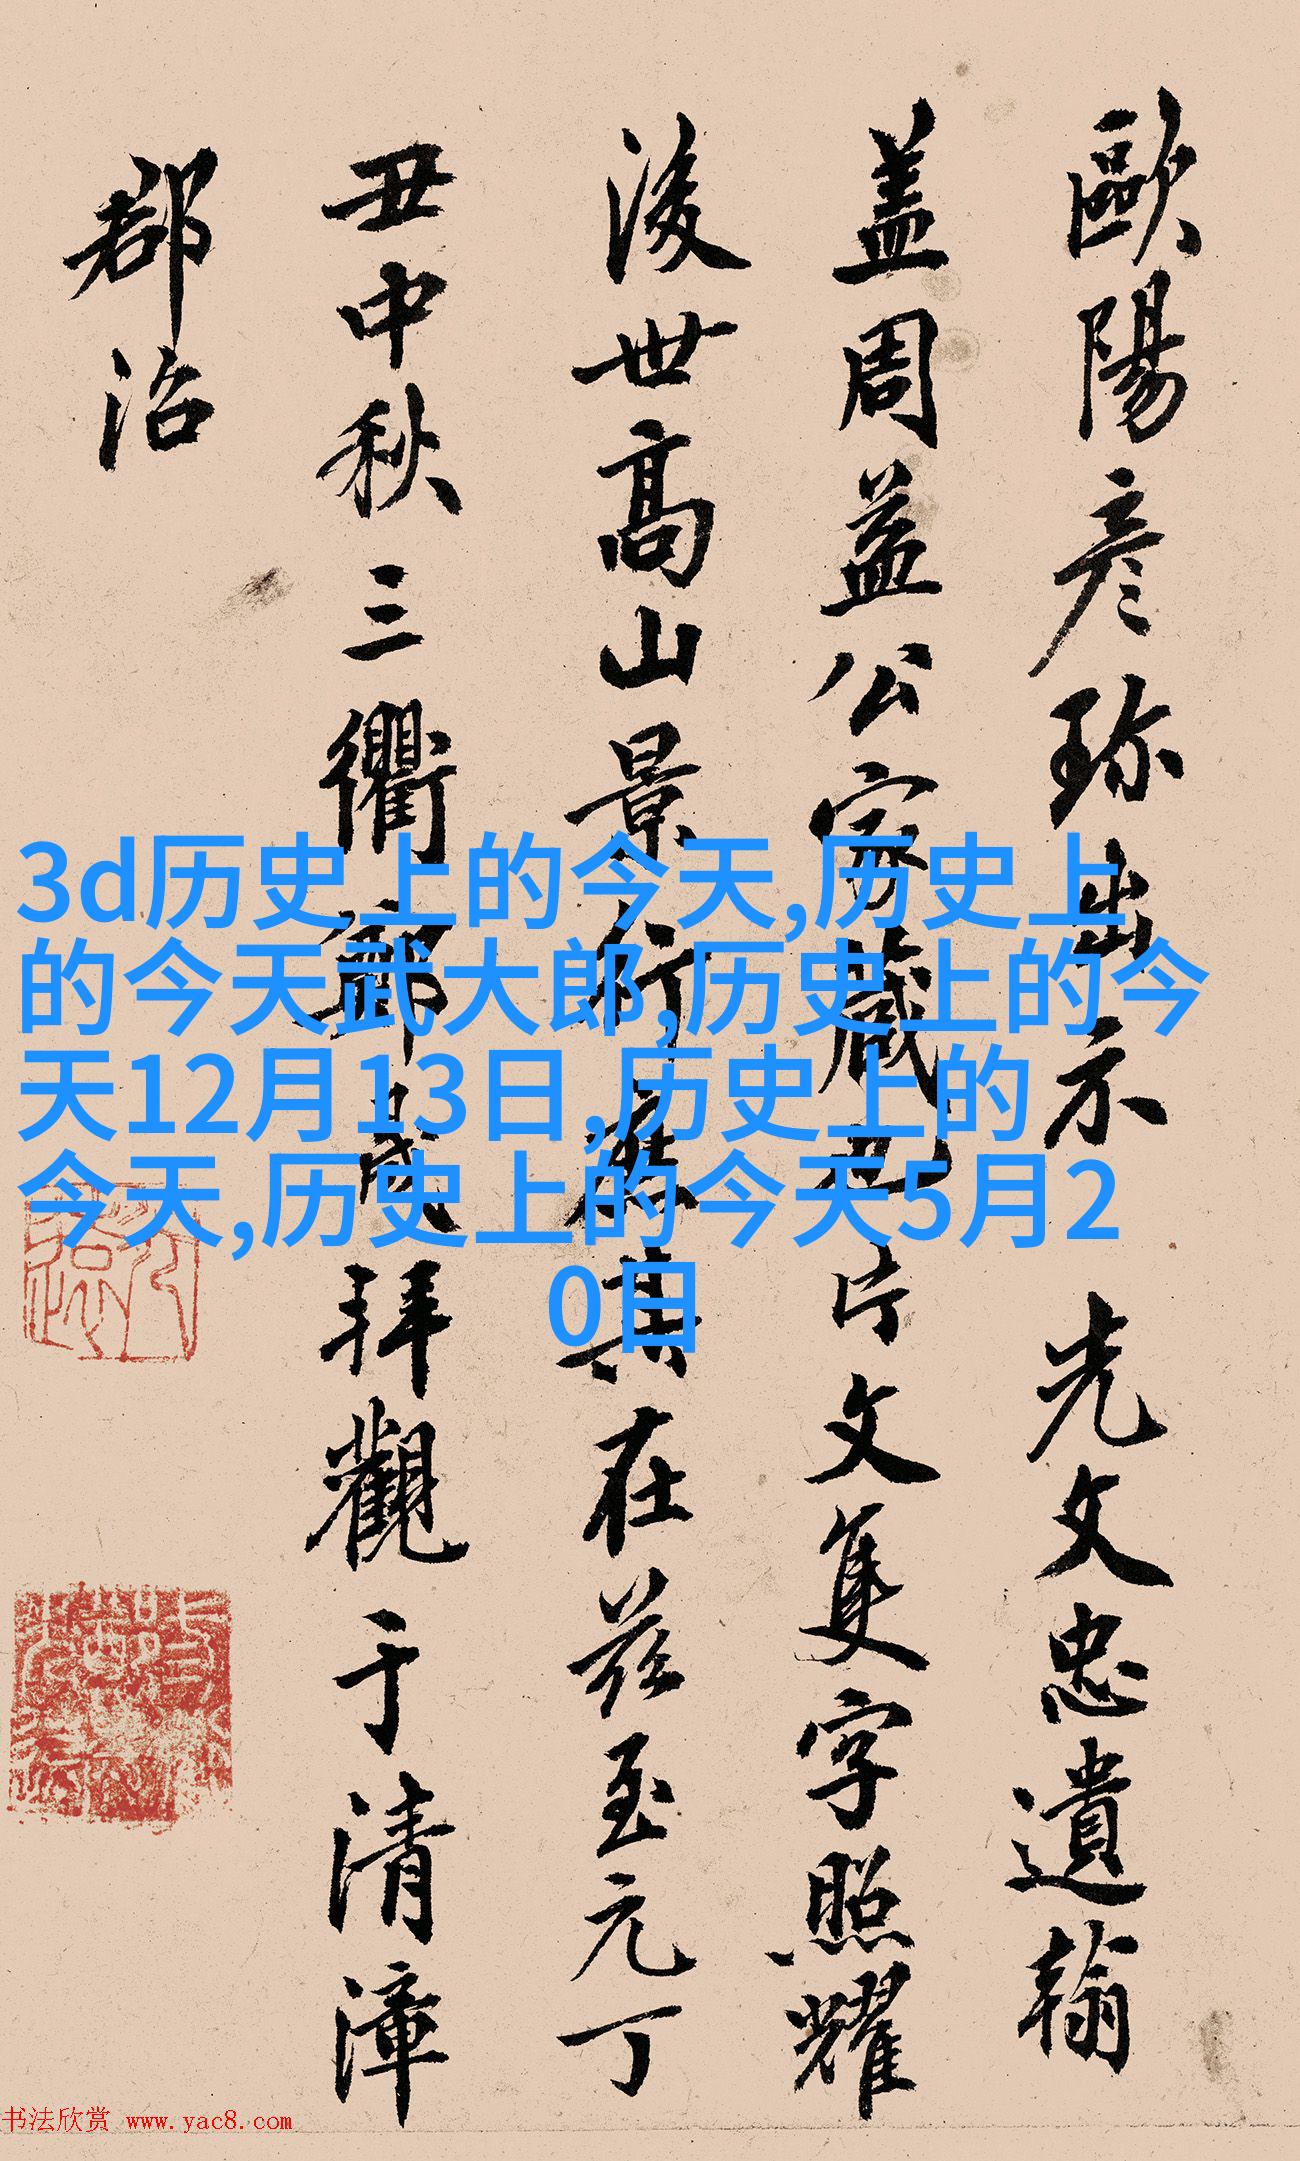 歐陽彦珎出示 光文忠遺翰
盖周益公家藏也片文隻字照耀
後世高山景行其在兹至元丁
丑中秋三衢鄭咸拜觀于清漳
郡治
3d历史上的今天,历史上
的今天武大郎,历史上的今
天12月13日,历史上的
今天,历史上的今天5月2
0日
书法欣赏 www.yac8.com